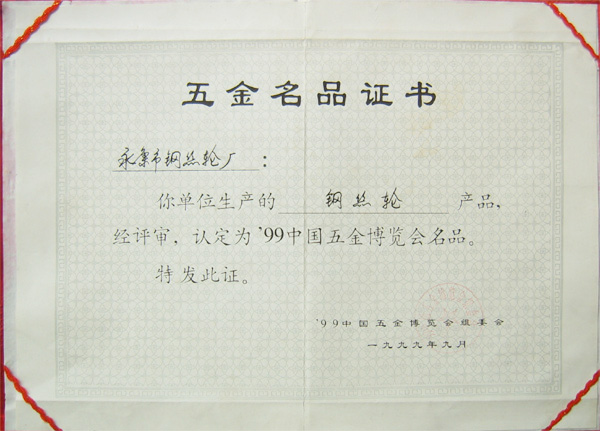 五金名品证书
永康市钢丝轮厂：
你单位生产的 钢丝轮 产品，
经评审，认定为'99中国五金博览会名品。
特发此证。
'99中国五金博览会组委会
一九九九年九月